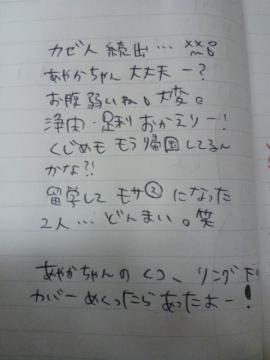 カゼ人 続出…
あやかちゃん 大丈夫ー?
お腹弱いね。大変。
浄実・足利 おかえりー!
くじめも もう帰国してるん
かな?!
留学して モサ②になった
2人…どんまい。笑
あやかちゃんの くつ、リング
カバーめくったら あったよー!